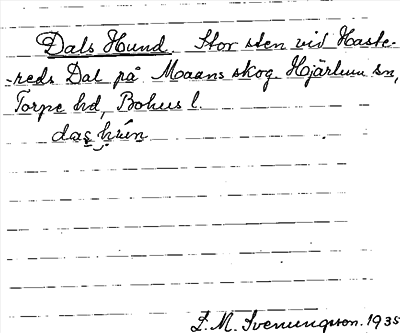 Dals Hund. Stor sten vid Haste-
-reds Dal på Maans skog. Hjärtum sn,
Torpe hd, Bohus l.
das hun
E. M. Svenungsson. 1935